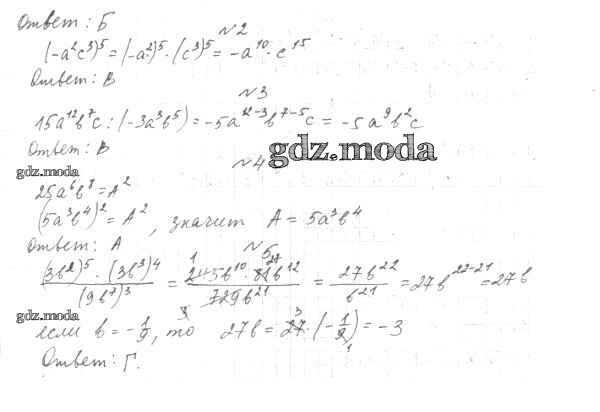 Ответ: Б
№2
(-a²c³)⁵ = (-a²)⁵ · (c³)⁵ = -a¹⁰ · c¹⁵
Ответ: В
№3
15a¹²b⁷c : (-3a³b⁵) = -5a¹²⁻³b⁷⁻⁵c = -5a⁹b²c
Ответ: В
gdz.moda
№4
gdz.moda
25a⁶b⁸ = A²
(5a³b⁴)² = A², значит A = 5a³b⁴
Ответ: А
№5
(3b²)⁵ · (3b³)⁴ / (9b⁷)³ = 243b¹⁰ · 81b¹² / 729b²¹ = 27b²² / b²¹ = 27b²²⁻²¹ = 27b
gdz.moda
если b = -1/9, то 27b = 27 · (-1/9) = -3
Ответ: Г.